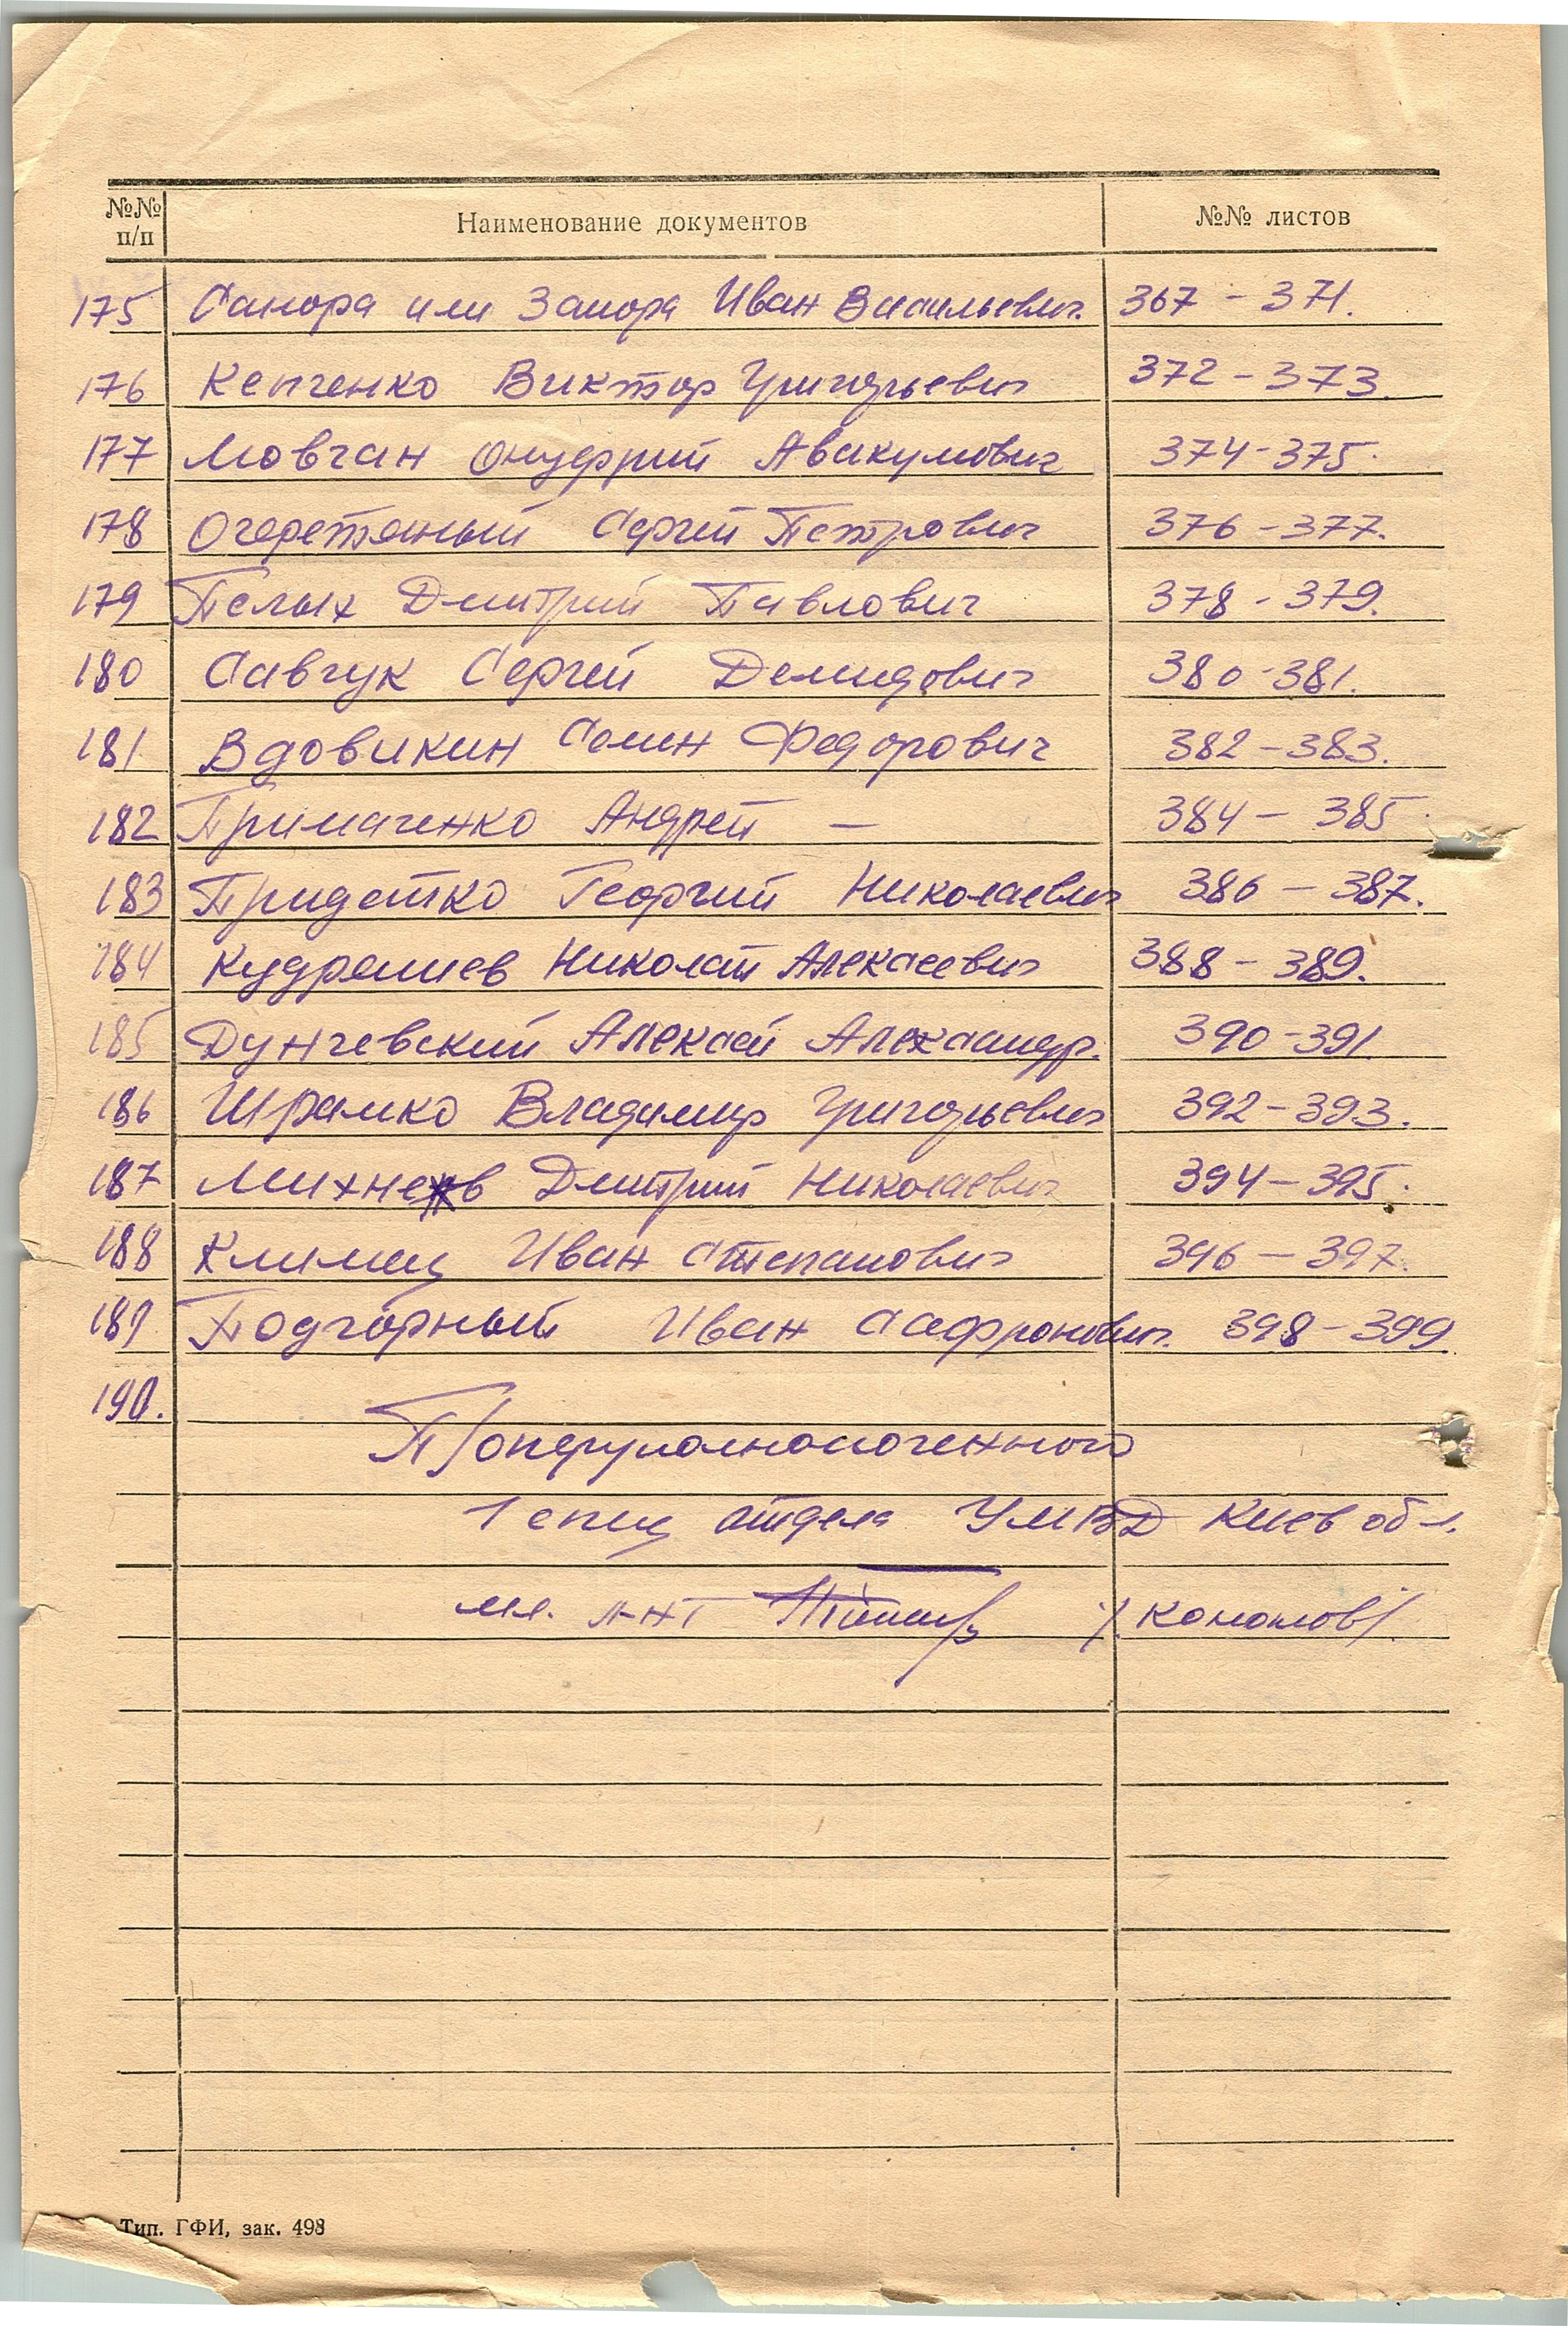 №№ п/п Наименование документов №№ листов
175 Сапора или Запора Иван Васильевич. 367 - 371.
176 Кепченко Виктор Григорьевич 372 - 373.
177 Мовчан Онуфрий Авакумович 374-375.
178 Очеретяный Сергей Петрович 376 - 377.
179 Пелых Дмитрий Павлович 378 - 379.
180 Савчук Сергей Демидович 380-381.
181. Вдовикин Семен Федорович 382 - 383.
182 Примаченко Андрей — 384 - 385.
183 Придатко Георгий Николаевич 386 - 387.
184 Кудряшев Николай Алексеевич 388 - 389.
185 Дунчевский Алексей Александр. 390-391
186 Шрамко Владимир Григорьевич 392 - 393.
187 Михнев Дмитрий Николаевич 394 - 395.
188 Климец Иван Степанович 396 - 397.
189 Подгорный Иван Сафронович. 398 - 399.
190.
П/оперуполномоченного
1 спец отдела УМВД Киев обл.
мл. л-нт /Кономов/
Тип. ГФИ, зак. 498